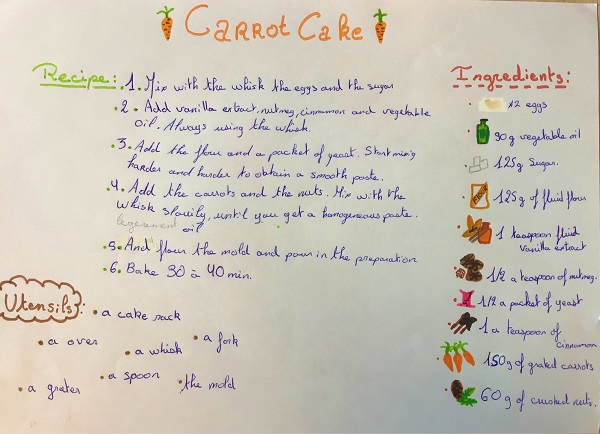 Carrot Cake
Recipe:
1. Mix with the whisk the eggs and the sugar
2. Add vanilla extract, nutmeg, cinnamon and vegetable
oil. Always using the whisk.
3. Add the flour and a packet of yeast. Start mixing
harder and harder to obtain a smooth paste.
4. Add the carrots and the nuts. Mix with the
whisk slowly, until you get a homogeneous paste.
legerement oil
5. And flour the mold and pour in the preparation
6. Bake 30 à 40 min.
Utensils:
a cake rack
a oven
a whisk
a fork
a grater
a spoon
the mold
Ingredients:
x2 eggs
90g vegetable oil
125g sugar.
125g of fluid flour
1 teaspoon fluid
vanilla extract
1/2 a teaspoon of nutmeg.
1/2 a packet of yeast
1 a teaspoon of
cinnamon
150g of grated carrots
60g of crushed nuts.